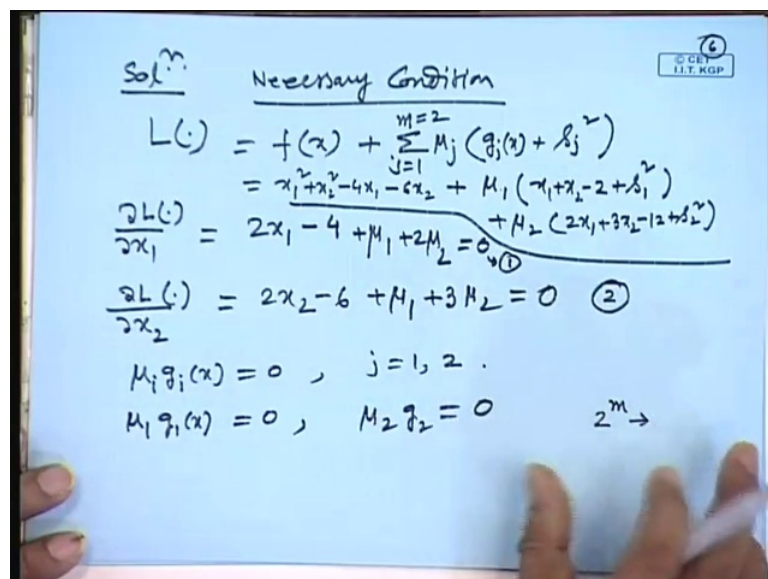 6
© CET
I.I.T. KGP
Solⁿ. Necessary Condition
L(·) = f(x) + Σ_{j=1}^{m=2} μ_j (g_j(x) + s_j²)
= x₁² + x₂² - 4x₁ - 6x₂ + μ₁ (x₁+x₂-2+s₁²)
+ μ₂ (2x₁+3x₂-12+s₂²)
∂L(·)/∂x₁ = 2x₁ - 4 + μ₁ + 2μ₂ = 0 → ①
∂L(·)/∂x₂ = 2x₂ - 6 + μ₁ + 3μ₂ = 0 ②
μ_j g_j(x) = 0 , j = 1, 2 .
μ₁ g₁(x) = 0 , μ₂ g₂ = 0 2^m →